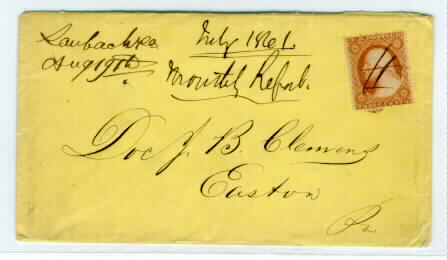 Laubachsville
Aug 19th
July 1861
Monthly Report.
Doc J. B. Clemens
Easton
Pa